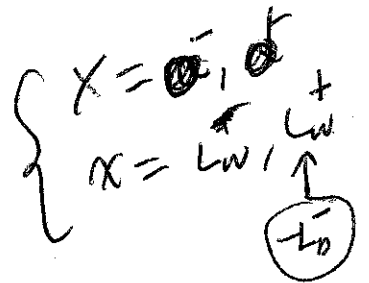 x = a⁻, a⁺
x = L_w⁻, L_w⁺
-L_D⁻